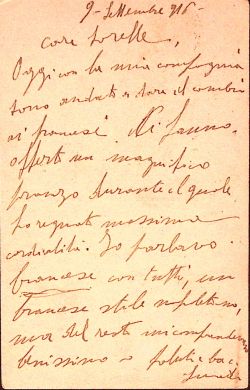 9 - Settembre 916 -
Care sorelle,
Oggi con la mia compagnia
sono andato a dare il cambio
ai francesi. Ci hanno
offerto un magnifico
pranzo durante il quale
ha regnato massima
cordialità. Io parlavo
francese con tutti, un
francese stile napoletano,
ma del resto mi comprendevano
benissimo - Saluti e baci